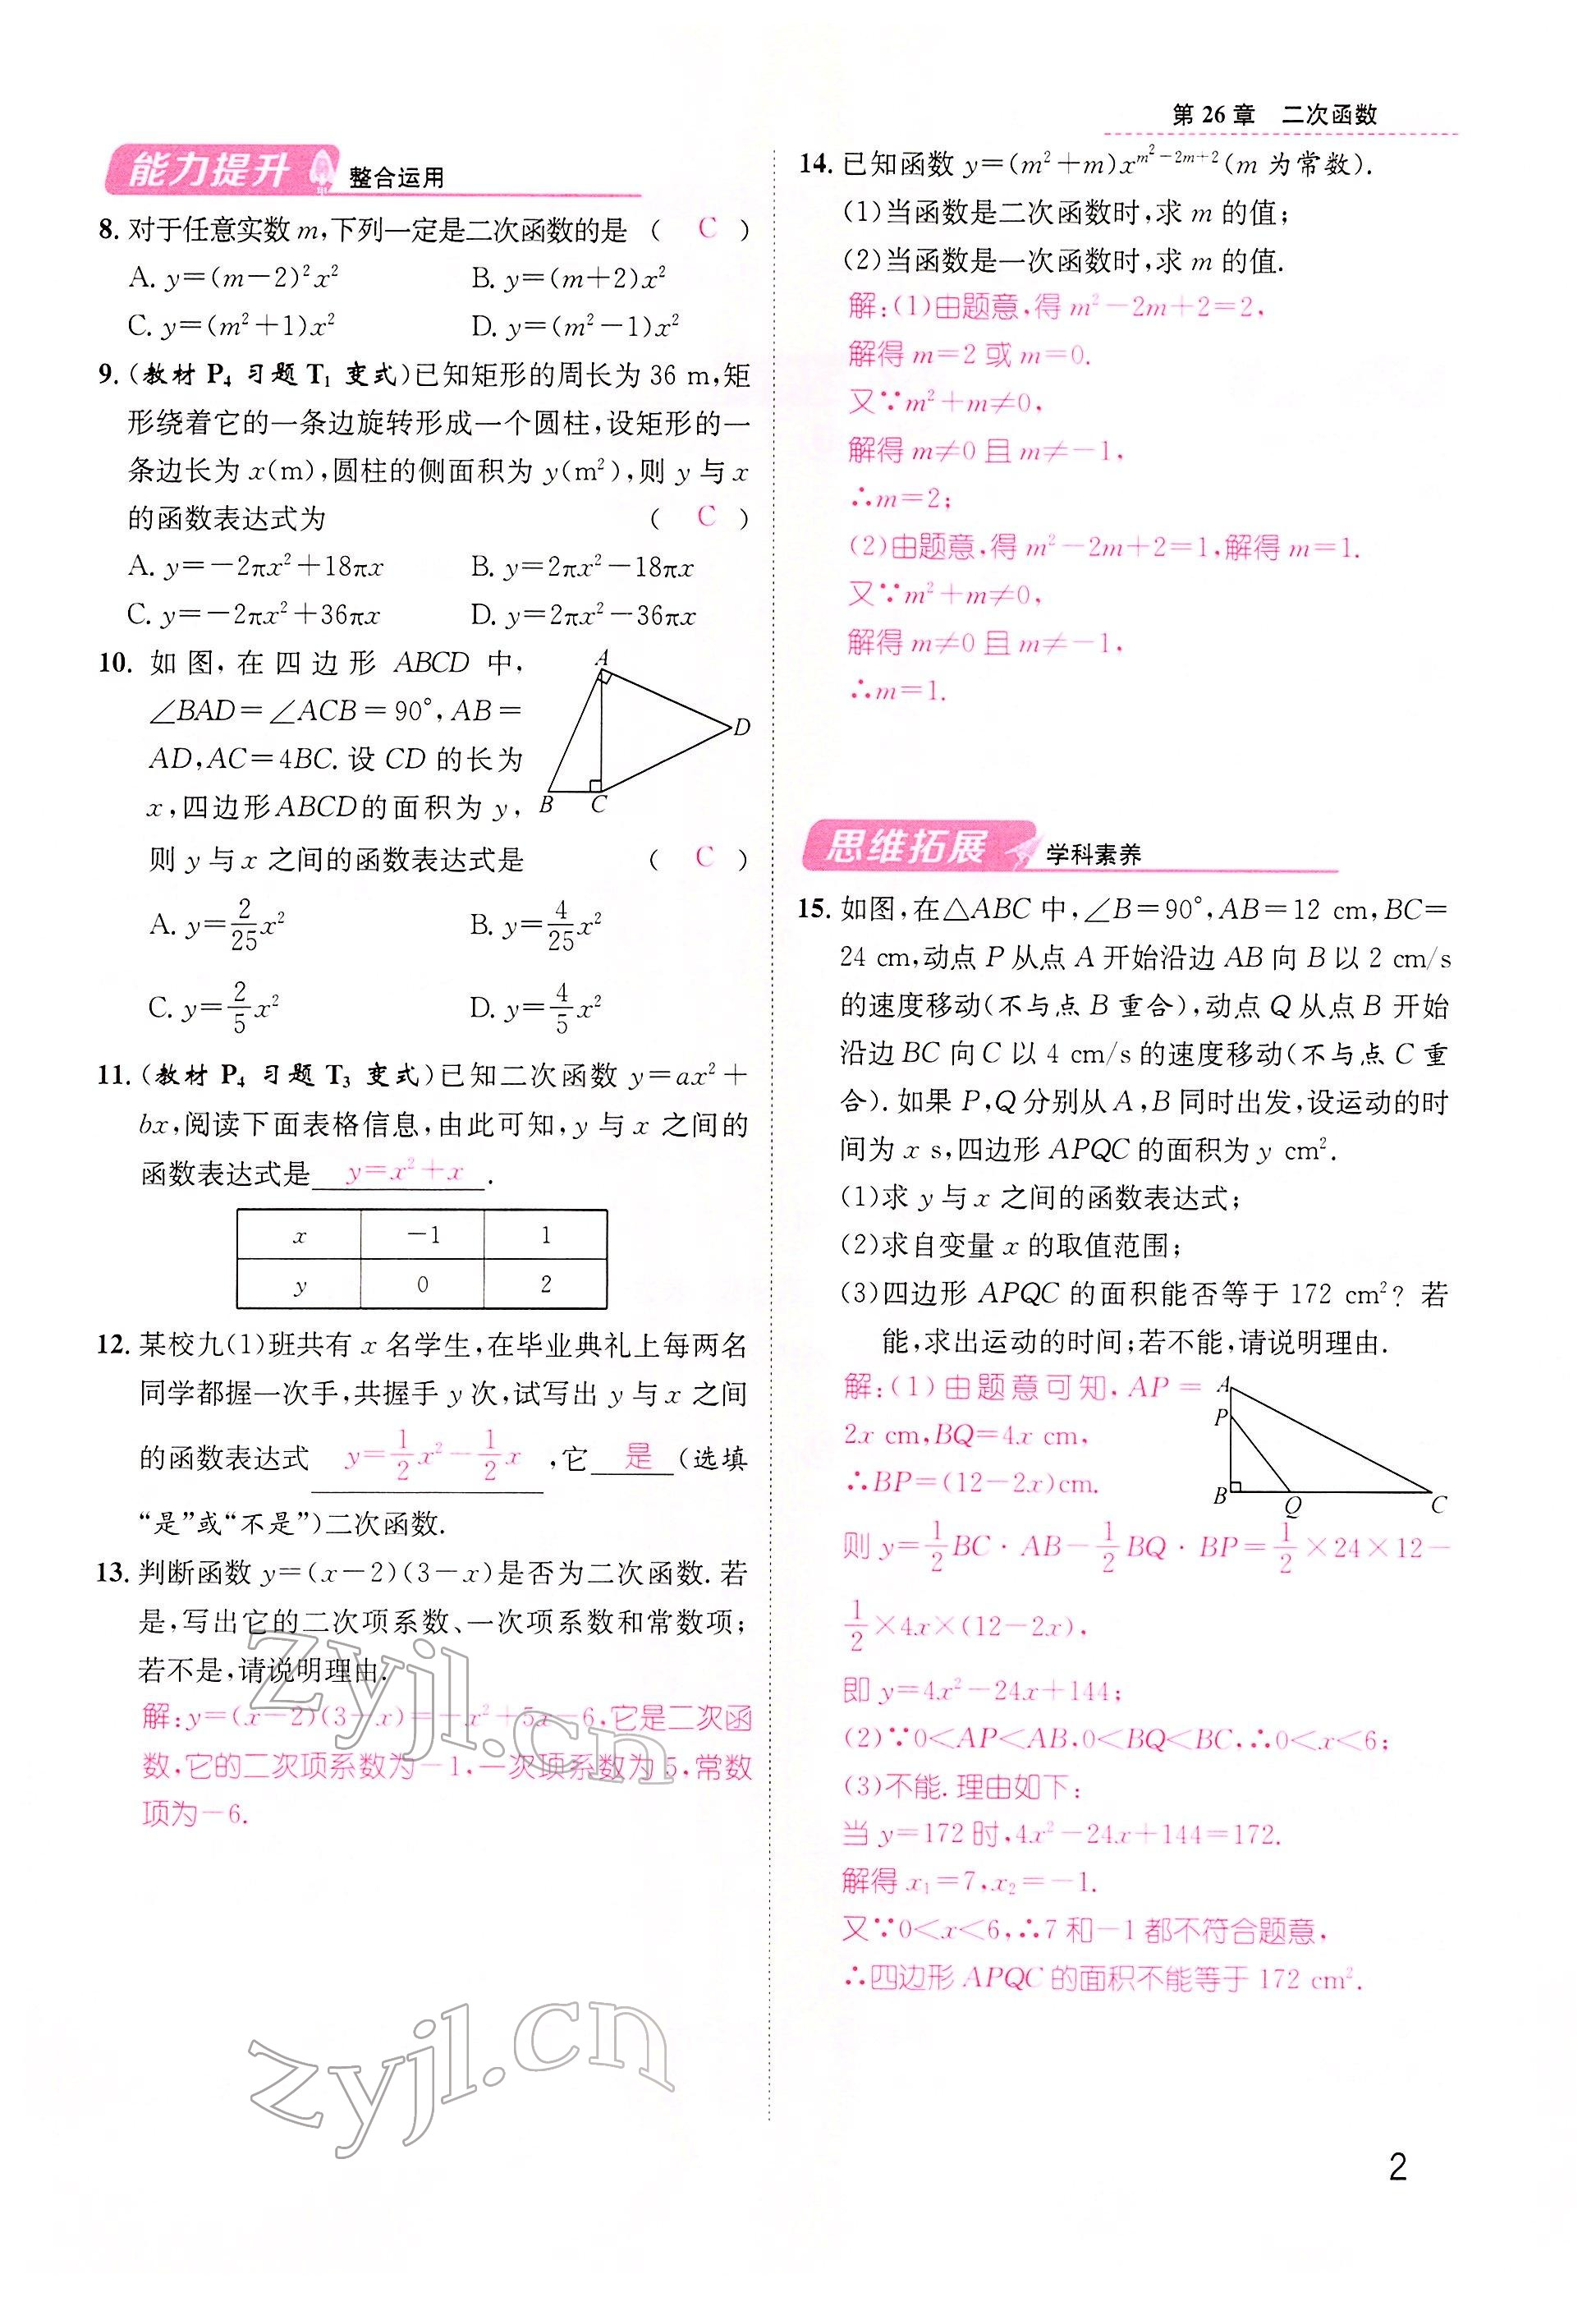 第 26 章　二次函数
能力提升 整合运用
8. 对于任意实数 m,下列一定是二次函数的是（ C ）
A. y=(m-2)²x²　B. y=(m+2)x²
C. y=(m²+1)x²　D. y=(m²-1)x²
9. (教材 P₄ 习题 T₁ 变式)已知矩形的周长为 36 m,矩
形绕着它的一条边旋转形成一个圆柱,设矩形的一
条边长为 x(m),圆柱的侧面积为 y(m²),则 y 与 x
的函数表达式为（ C ）
A. y=-2πx²+18πx　B. y=2πx²-18πx
C. y=-2πx²+36πx　D. y=2πx²-36πx
10. 如图,在四边形 ABCD 中,
∠BAD=∠ACB=90°,AB=
AD,AC=4BC. 设 CD 的长为
x,四边形ABCD的面积为 y,
则 y 与 x 之间的函数表达式是（ C ）
A
D
B
C
A. y=2/25 x²　B. y=4/25 x²
C. y=2/5 x²　D. y=4/5 x²
11. (教材 P₄ 习题 T₃ 变式)已知二次函数 y=ax²+
bx,阅读下面表格信息,由此可知,y 与 x 之间的
函数表达式是 y=x²+x .
x　-1　1
y　0　2
12. 某校九(1)班共有 x 名学生,在毕业典礼上每两名
同学都握一次手,共握手 y 次,试写出 y 与 x 之间
的函数表达式 y=1/2 x²-1/2 x ,它 是 (选填
“是”或“不是”)二次函数.
13. 判断函数 y=(x-2)(3-x)是否为二次函数. 若
是,写出它的二次项系数、一次项系数和常数项;
若不是,请说明理由.
解:y=(x-2)(3-x)=-x²+5x-6,它是二次函
数,它的二次项系数为-1,一次项系数为 5,常数
项为-6.
14. 已知函数 y=(m²+m)x^(m²-2m+2)(m 为常数).
(1)当函数是二次函数时,求 m 的值;
(2)当函数是一次函数时,求 m 的值.
解:(1)由题意,得 m²-2m+2=2,
解得 m=2 或 m=0.
又∵m²+m≠0,
解得 m≠0 且 m≠-1,
∴m=2;
(2)由题意,得 m²-2m+2=1,解得 m=1.
又∵m²+m≠0,
解得 m≠0 且 m≠-1,
∴m=1.
思维拓展 学科素养
15. 如图,在△ABC 中,∠B=90°,AB=12 cm,BC=
24 cm,动点 P 从点 A 开始沿边 AB 向 B 以 2 cm/s
的速度移动(不与点 B 重合),动点 Q 从点 B 开始
沿边 BC 向 C 以 4 cm/s 的速度移动(不与点 C 重
合). 如果 P,Q 分别从 A,B 同时出发,设运动的时
间为 x s,四边形 APQC 的面积为 y cm².
(1)求 y 与 x 之间的函数表达式;
(2)求自变量 x 的取值范围;
(3)四边形 APQC 的面积能否等于 172 cm²? 若
能,求出运动的时间;若不能,请说明理由.
解:(1)由题意可知,AP=
2x cm,BQ=4x cm,
∴BP=(12-2x)cm.
A
P
B
Q
C
则 y=1/2 BC·AB-1/2 BQ·BP=1/2×24×12-
1/2×4x×(12-2x),
即 y=4x²-24x+144;
(2)∵0<AP<AB,0<BQ<BC,∴0<x<6;
(3)不能. 理由如下:
当 y=172 时,4x²-24x+144=172.
解得 x₁=7,x₂=-1.
又∵0<x<6,∴7 和-1 都不符合题意,
∴四边形 APQC 的面积不能等于 172 cm².
zyjl.cn
zyjl.cn
2